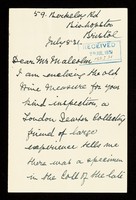 59. Berkeley Rd
Bishopston
Bristol
July 8 31.
RECEIVED
Dear Mr
I am enclosing the old
Wine measure for your
kind inspection, a
London Pewter Collecting
friend of large
experience tells me
there was a specimen
in the Coll of the late